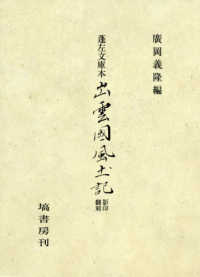 廣岡義隆編
蓬左文庫本
出雲國風土記
影印
翻刻
塙書房刊